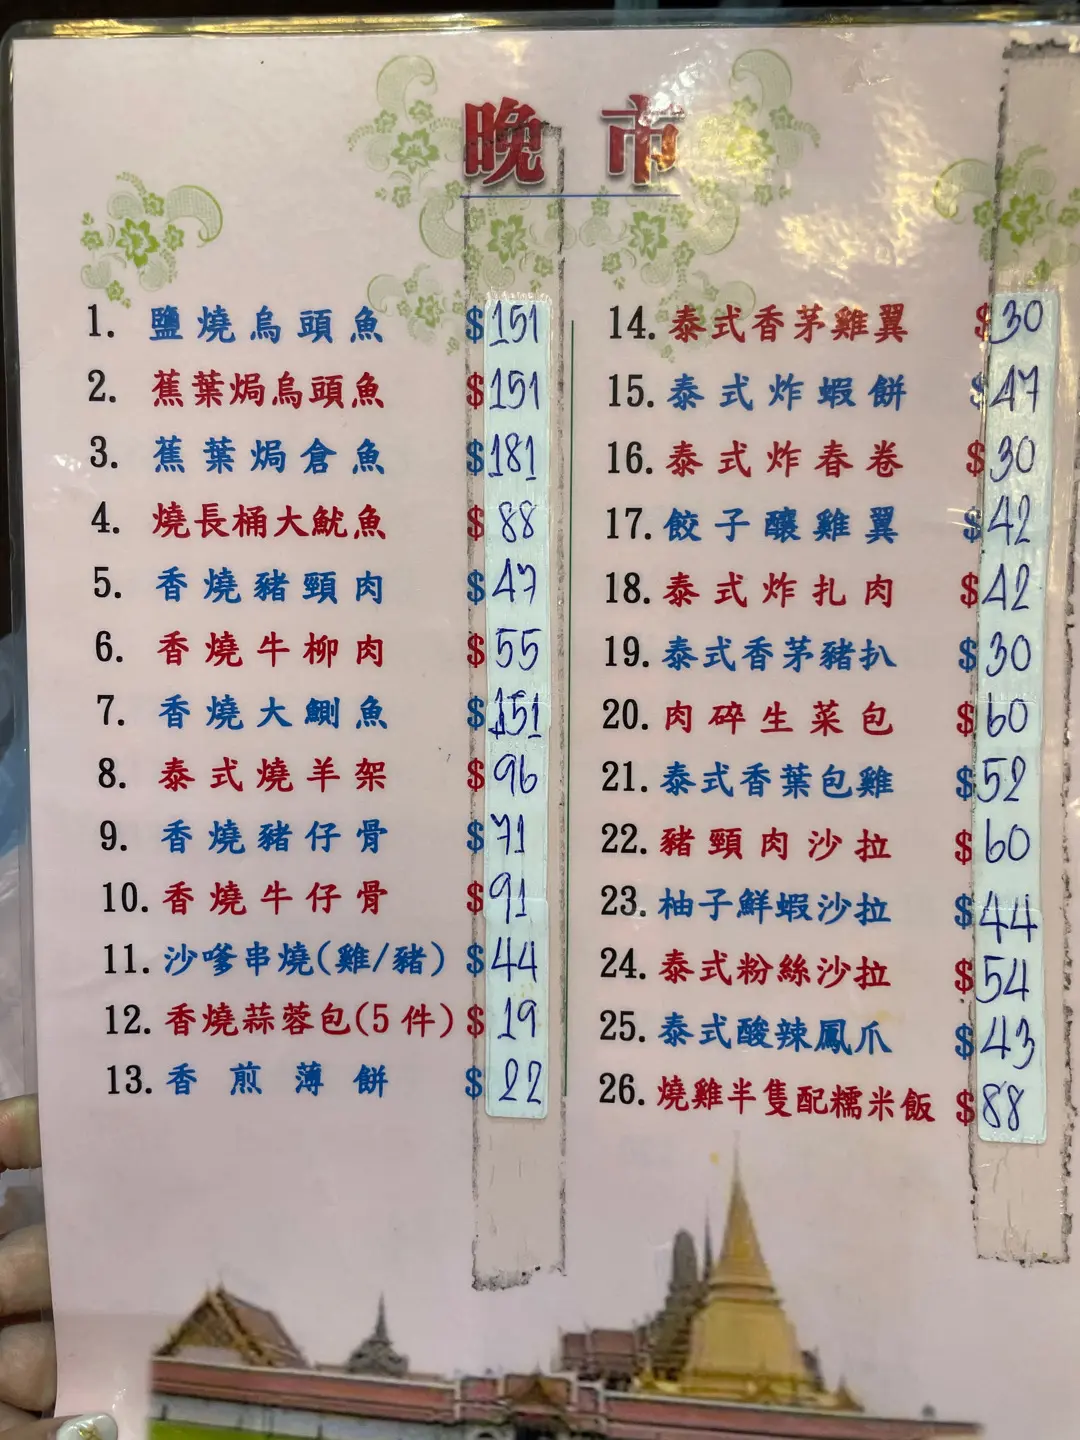 晚市
1. 鹽燒烏頭魚 $151
2. 蕉葉焗烏頭魚 $151
3. 蕉葉焗倉魚 $181
4. 燒長桶大魷魚 $88
5. 香燒豬頸肉 $47
6. 香燒牛柳肉 $55
7. 香燒大鰂魚 $151
8. 泰式燒羊架 $96
9. 香燒豬仔骨 $71
10. 香燒牛仔骨 $91
11. 沙嗲串燒(雞/豬) $44
12. 香燒蒜蓉包(5件) $19
13. 香煎薄餅 $22
14. 泰式香茅雞翼 $30
15. 泰式炸蝦餅 $47
16. 泰式炸春卷 $30
17. 餃子釀雞翼 $42
18. 泰式炸扎肉 $42
19. 泰式香茅豬扒 $30
20. 肉碎生菜包 $60
21. 泰式香葉包雞 $52
22. 豬頸肉沙拉 $60
23. 柚子鮮蝦沙拉 $44
24. 泰式粉絲沙拉 $54
25. 泰式酸辣鳳爪 $43
26. 燒雞半隻配糯米飯 $88